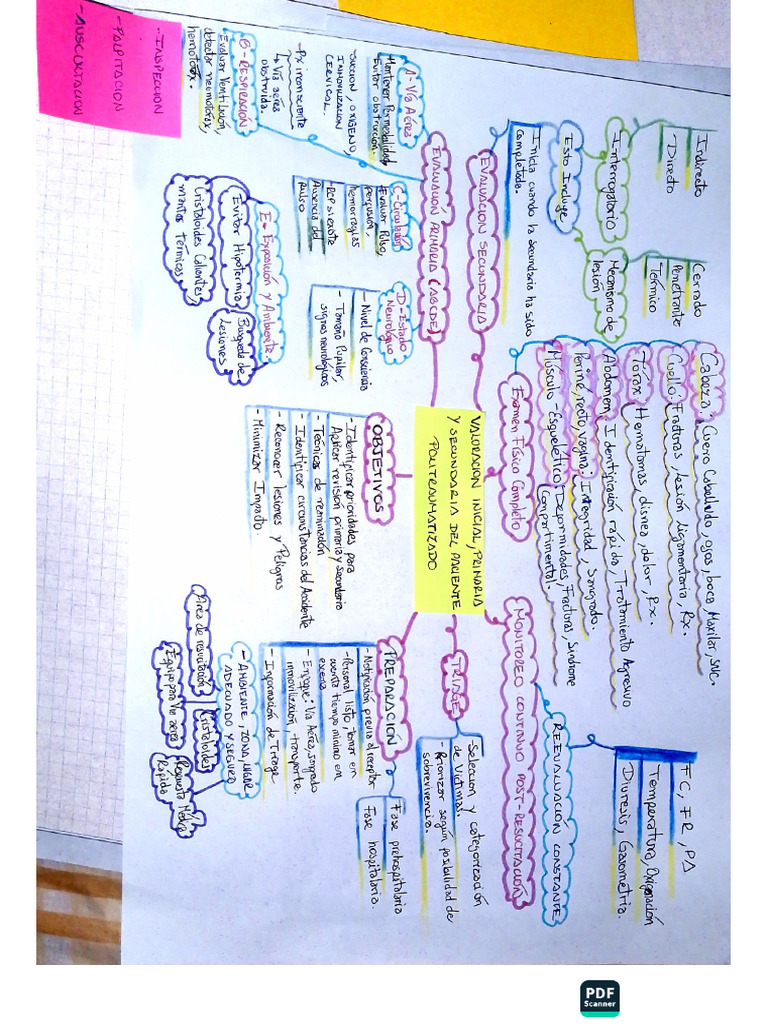 VALORACION INICIAL, PRIMARIA
Y SECUNDARIA DEL PACIENTE
POLITRAUMATIZADO
OBJETIVOS
- Identificar prioridades para
Aplicar revisión primaria y secundaria
Técnicas de reanimación
- Identificar circunstancias del Accidente
- Reconocer lesiones y Peligros
- Minimizar Impacto.
PREPARACIÓN
- Notificación previa al receptor
- Personal listo, tomar en
cuenta tiempo mínimo em
escena
- Enfoque: Vía Aérea, sangrado
inmovilización, transporte.
- Información de Triage
Fase prehospitalaria
Fase hospitalaria.
- AMBIENTE, ZONA, LUGAR
ADECUADO Y SEGURO
Area de resucitación
Equipo para Vía aérea
Cristaloides
Respuesta Médica
Rápida
TRIAGE
- Selección y categorización
de Víctimas.
- Priorizar según posibilidad de
sobrevivencia.
MONITOREO CONTINUO POST-RESUCITACIÓN
REEVALUACIÓN CONSTANTE
FC, FR, PA
Temperatura, Oxigenación
Diuresis, Gasometría.
EVALUACIÓN PRIMARIA (ABCDE)
A - Vía Aérea
Mantener Permeabilidad
Evitar obstrucción.
SUCCION, OXIGENO,
INMOVILIZACION
CERVICAL.
- Px inconsciente
↳ Vía aérea
obstruida.
B - RESPIRACIÓN
- Evaluar Ventilación,
detectar neumotórax,
hemotórax.
- INSPECCION
- PALPITACION
- AUSCULTACION
C - Circulación
Evaluar Pulso,
perfusión,
hemorragias
- RCP si existe
Ausencia del
pulso
D - Estado
Neurológico
- Nivel de Consciencia
- Tamaño Pupilar,
signos neurológicos
E - Exposición y Ambiente.
Evitar Hipotermia
Busqueda de
Lesiones
Cristaloides Calientes,
mantas térmicas
EVALUACION SECUNDARIA
Inicia cuando la secundaria ha sido
completada.
Esto Incluye
Interrogatorio
Indirecto
Directo
Mecanismo de
lesión
Cerrado
Penetrante
Térmico
Examen Físico Completo
Cabeza: Cuero Cabelludo, ojos, boca, Maxilar, SNC.
Cuello: Fracturas, lesión ligamentaria, Rx.
Tórax: Hematomas, disnea, dolor, Rx.
Abdomen: Identificación rápida, Tratamiento Agresivo
Periné, recto, vagina: Integridad, Sangrado.
Músculo-Esquelético: Deformidades Fracturas, Sindrome
Compartimental.
PDF
Scanner